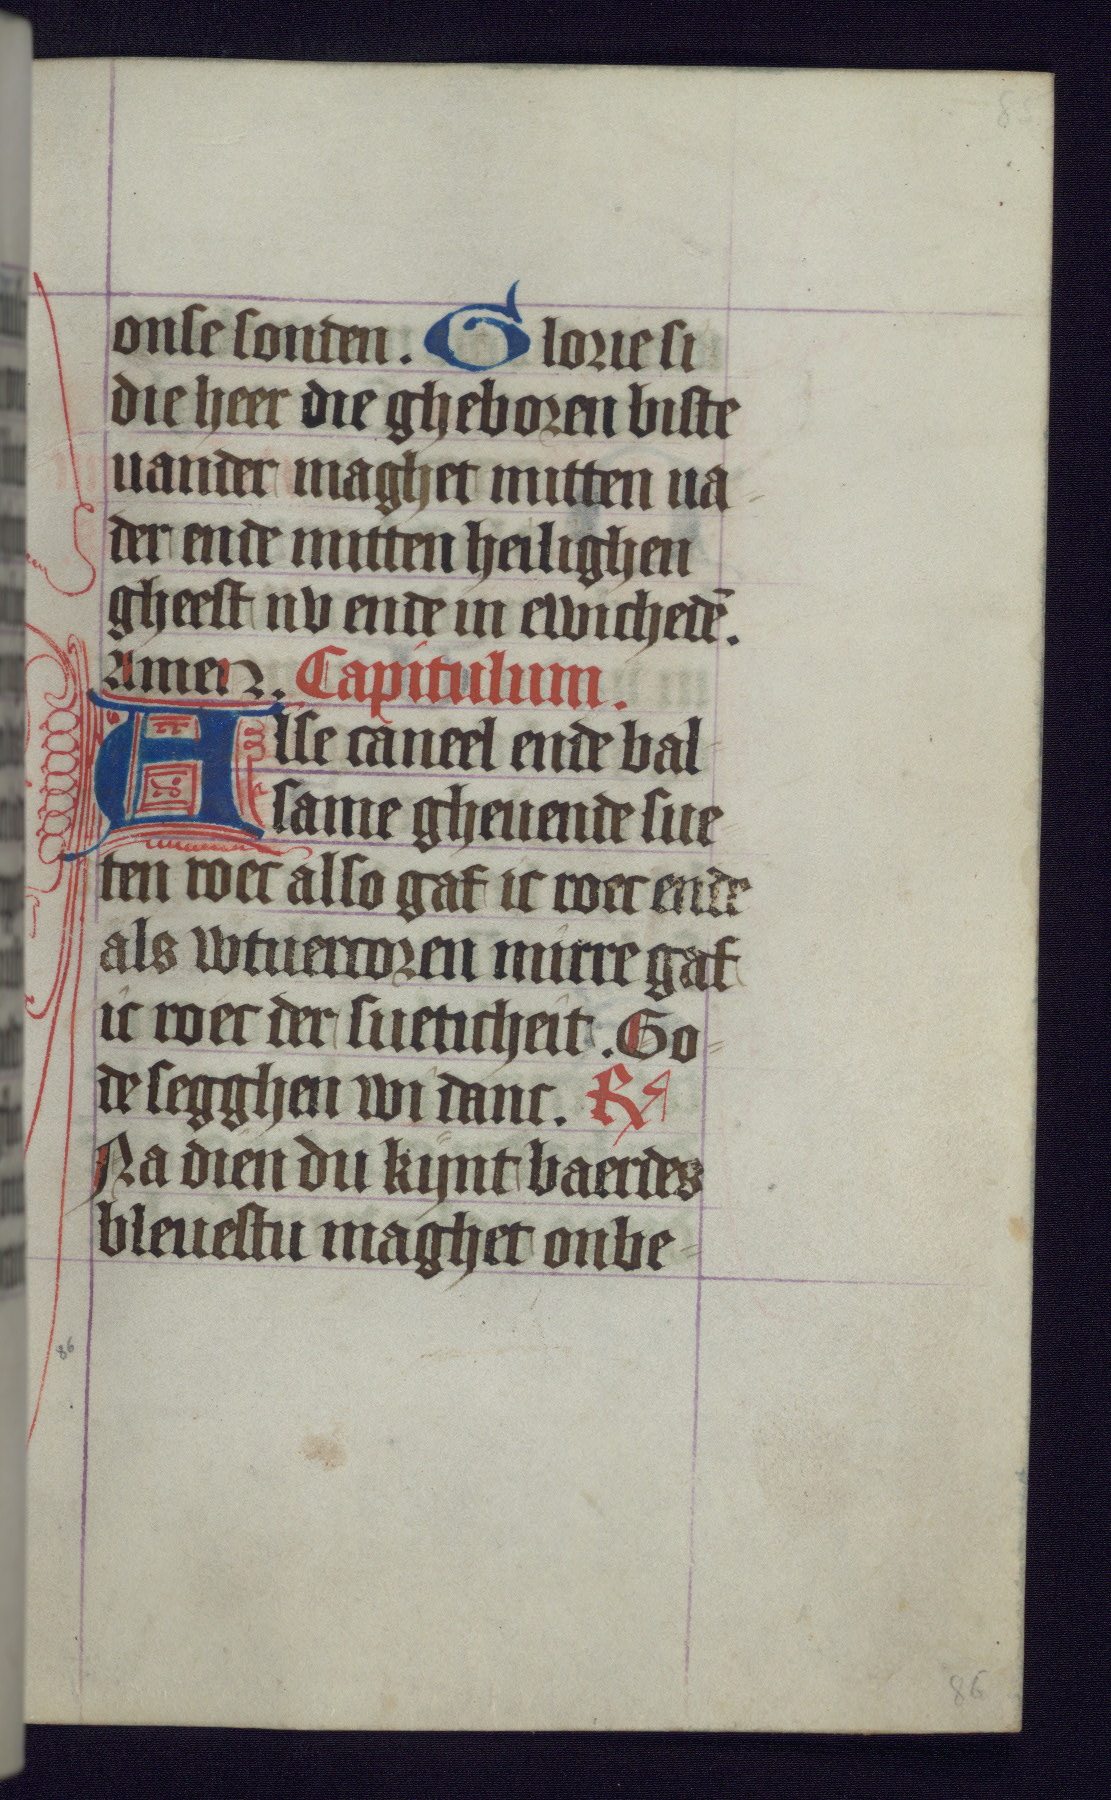 onse sonden. Glorie si
die heer die gheboren biste
uander maghet mitten ua-
der ende mitten heilighen
gheest nv ende in ewichedē.
Amen. Capitulum.
Alse caneel ende bal-
same gheuende sue-
ten roec also gaf ic roec ende
als wtuercoren mirre gaf
ic roec der sueticheit. Go-
de segghen wi danc. R
Na dien du kijnt baerdes
bleuestu maghet onbe-
86
86